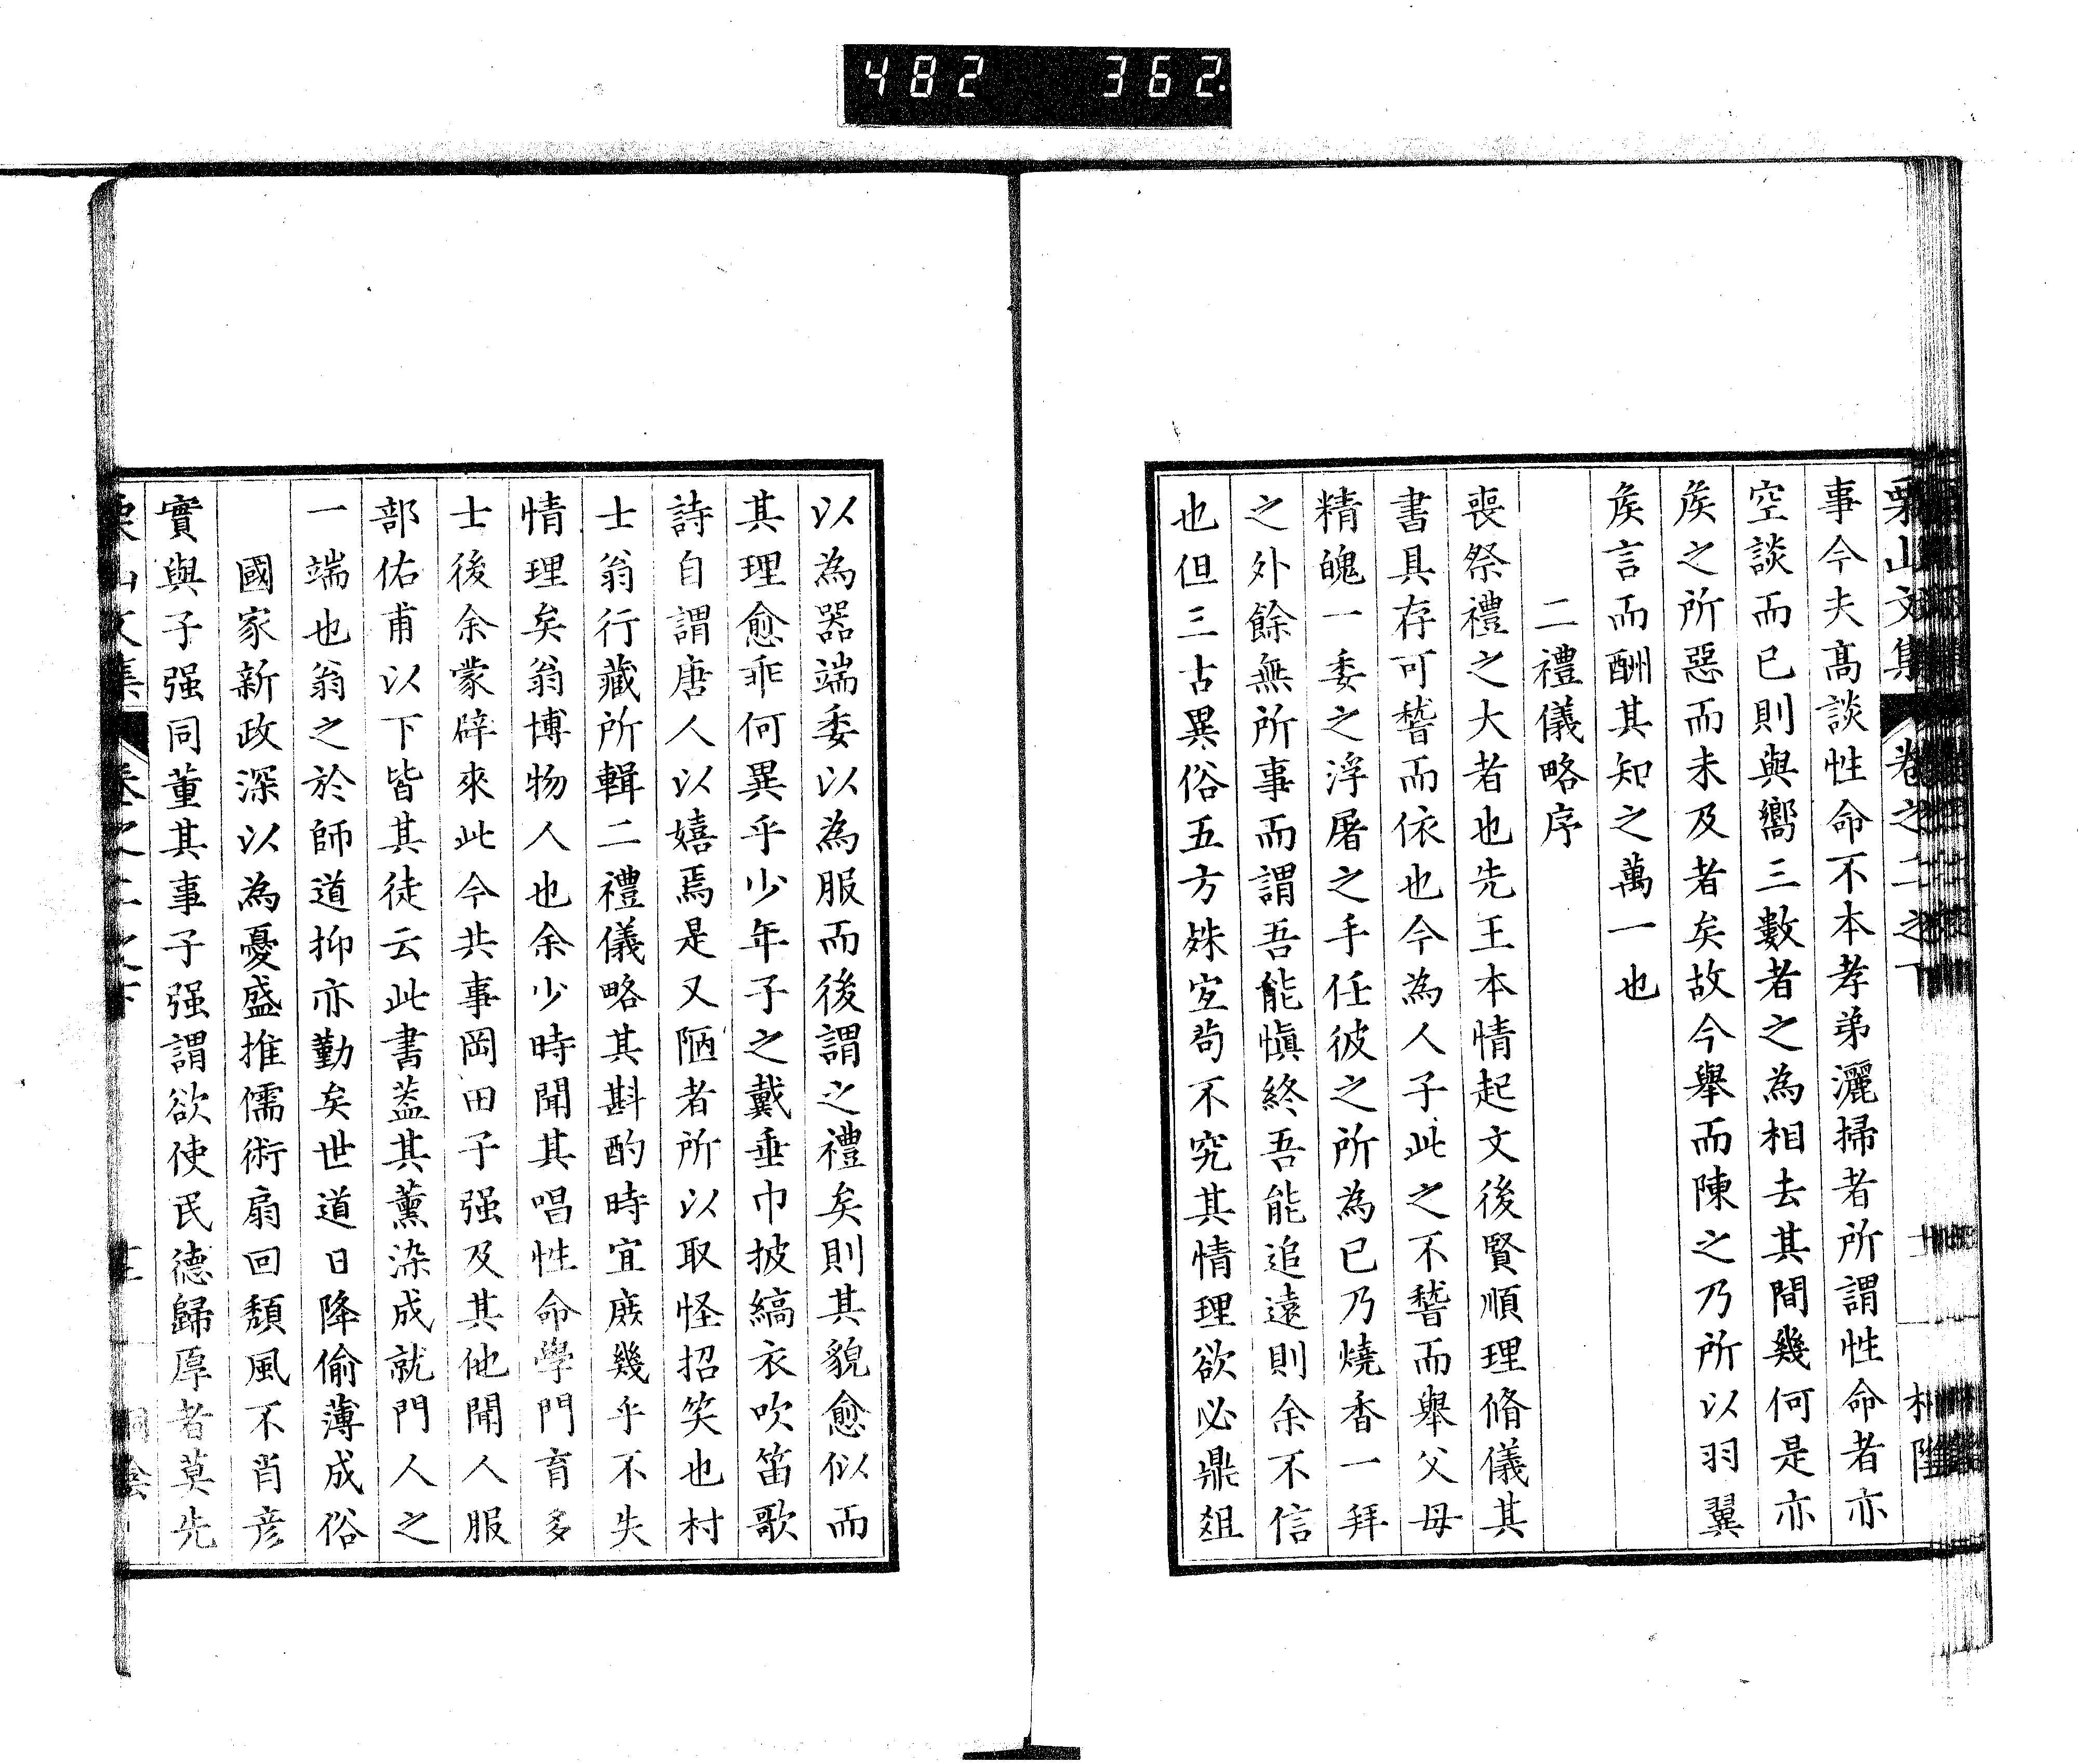 482 362
栗山文集 卷之二之下
事今夫髙談性命不本孝弟灑掃者所謂性命者亦
空談而已則與嚮三數者之為相去其間幾何是亦
矦之所惡而未及者矣故今舉而陳之乃所以羽翼
矦言而酬其知之萬一也
二禮儀略序
喪祭禮之大者也先王本情起文後賢順理脩儀其
書具存可稽而依也今為人子此之不稽而舉父母
精魄一委之浮屠之手任彼之所為已乃燒香一拜
之外餘無所事而謂吾能愼終吾能追遠則余不信
也但三古異俗五方殊宜苟不究其情理欲必鼎俎
以為器端委以為服而後謂之禮矣則其貌愈似而
其理愈乖何異乎少年子之戴垂巾披縞衣吹笛歌
詩自謂唐人以嬉焉是又陋者所以取怪招笑也村
士翁行藏所輯二禮儀略其斟酌時宜庶幾乎不失
情理矣翁博物人也余少時聞其唱性命學門育多
士後余蒙辟來此今共事岡田子强及其他聞人服
部佑甫以下皆其徒云此書蓋其薰染成就門人之
一端也翁之於師道抑亦勤矣世道日降偷薄成俗
國家新政深以為憂盛推儒術扇回頽風不肖彦
實與子强同董其事子强謂欲使民德歸厚者莫先
栗山文集 卷之二之下